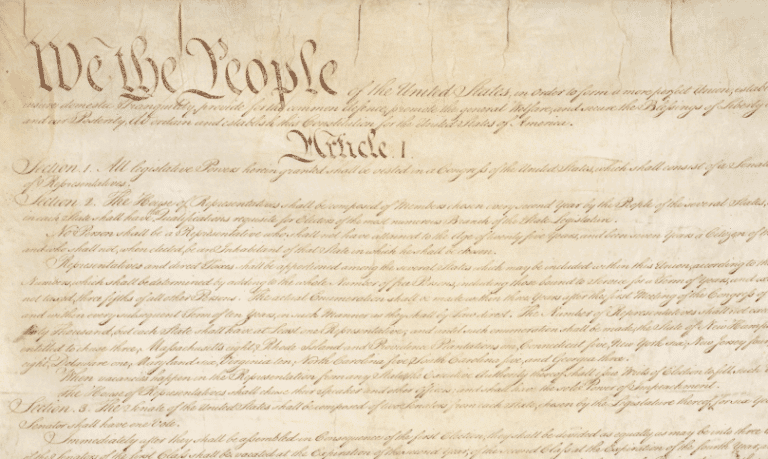 We the People of the United States, in Order to form a more perfect Union, establ
insure domestic Tranquility, provide for the common defence, promote the general Welfare, and secure the Blessings of Liberty
and our Posterity, do ordain and establish this Constitution for the United States of America.
Article I.
Section. 1. All legislative Powers herein granted shall be vested in a Congress of the United States, which shall consist of a Senate
of Representatives.
Section. 2. The House of Representatives shall be composed of Members chosen every second Year by the People of the several States,
in each State shall have the Qualifications requisite for Electors of the most numerous Branch of the State Legislature.
No Person shall be a Representative who shall not have attained to the Age of twenty five Years, and been seven Years a Citizen of the
and who shall not, when elected, be an Inhabitant of that State in which he shall be chosen.
Representatives and direct Taxes shall be apportioned among the several States which may be included within this Union, according to the
Numbers, which shall be determined by adding to the whole Number of free Persons, including those bound to Service for a Term of Years, and
not taxed, three fifths of all other Persons. The actual Enumeration shall be made within three Years after the first Meeting of the Congress of
and within every subsequent Term of ten Years, in such Manner as they shall by Law direct. The Number of Representatives shall not
thirty Thousand, but each State shall have at Least one Representative; and until such enumeration shall be made, the State of New Hamps
entitled to chuse three, Massachusetts eight, Rhode Island and Providence Plantations one, Connecticut five, New York six, New Jersey four,
eight, Delaware one, Maryland six, Virginia ten, North Carolina five, South Carolina five, and Georgia three.
When vacancies happen in the Representation from any State, the Executive Authority thereof shall issue Writs of Election to fill such
The House of Representatives shall chuse their Speaker and other Officers; and shall have the sole Power of Impeachment.
Section. 3. The Senate of the United States shall be composed of two Senators from each State, chosen by the Legislature thereof, for six
Senator shall have one Vote.
Immediately after they shall be assembled in Consequence of the first Election, they shall be divided as equally as may be into three
of the Senators of the first Class shall be vacated at the Expiration of the second Year, of the second Class at the Expiration of the fourth Year,